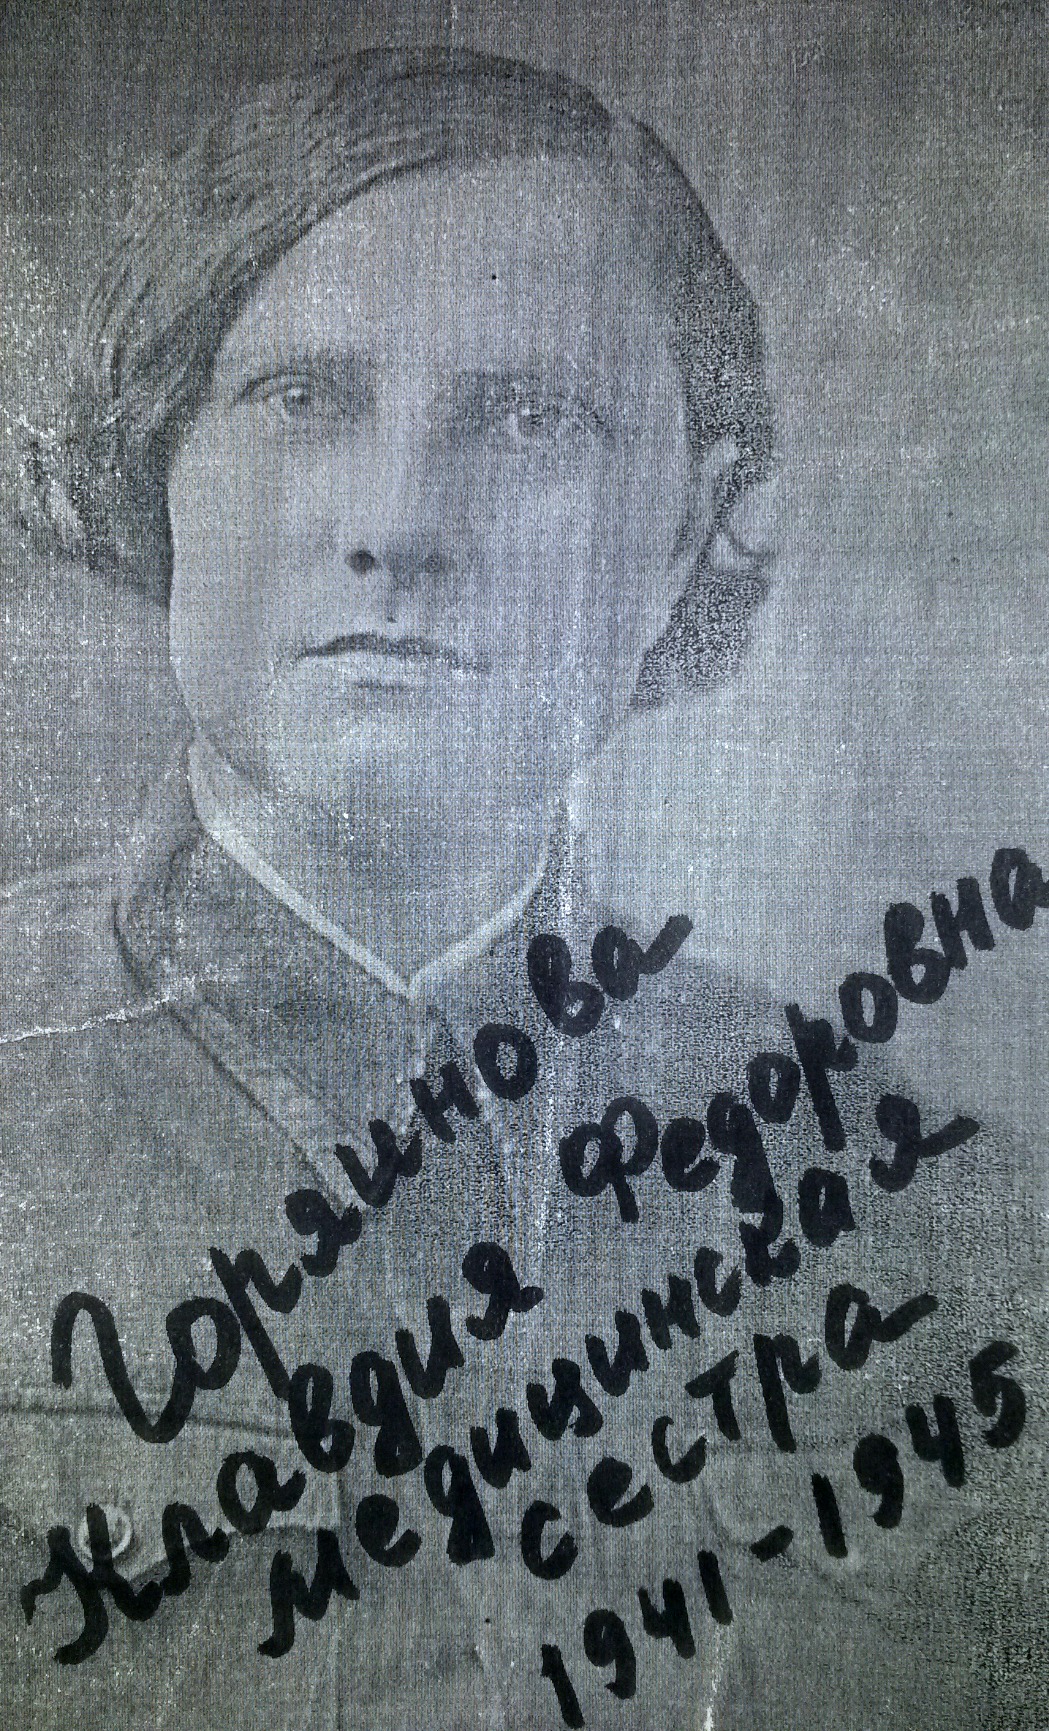 Горяинова
Клавдия Федоровна
медицинская
сестра
1941-1945